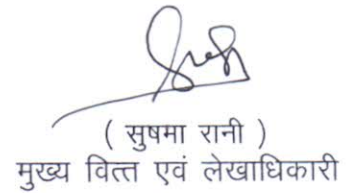 ( सुषमा रानी )
मुख्य वित्त एवं लेखाधिकारी